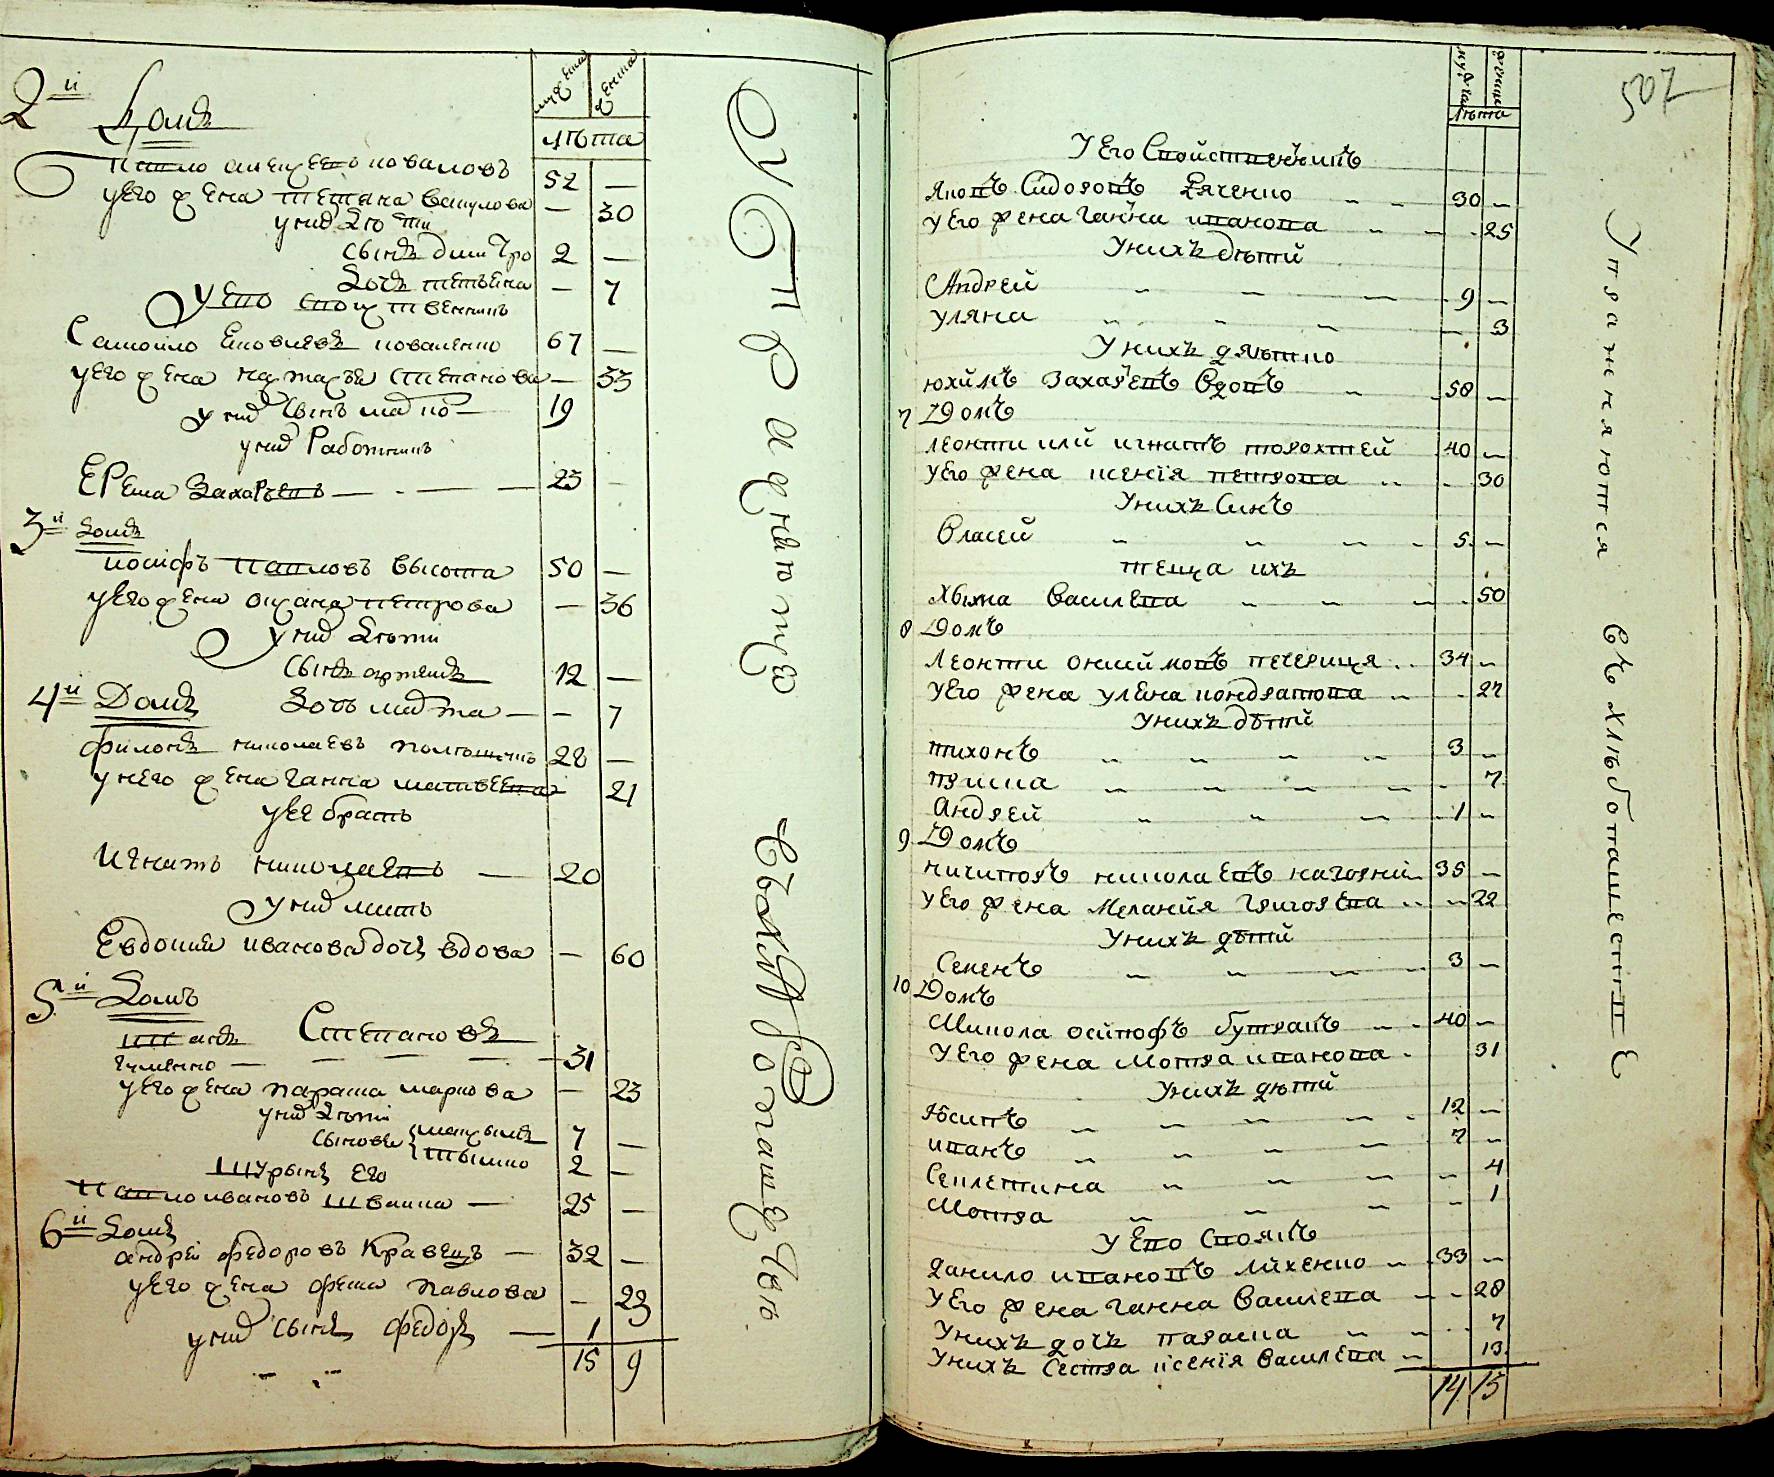 мужеска женска
лѣта
2й Домъ
Павло алексѣевъ коваловъ 52 —
у его жена Татяна вакулова — 30
у них дѣти
сынъ димитро 2 —
дочъ татьяна — 7
у его свойственникъ
Самойло Яковлевъ коваленко 67 —
у его жена настасья степанова — 33
у них сынъ марко — 19
у них Работникъ
Ерема Захаръевъ — 23 —
3й Домъ
иосифъ павловъ высота 50 —
у его жена оксана петрова — 36
у них дѣти
сынъ артемъ 12 —
4й Домъ
дочъ марта — — 7
филонъ николаевъ 28 —
у него жена ганна матвѣева 21
у ее братъ
Игнатъ николаевъ — 20
у них мать
Евдокия иванова дочь вдова — 60
5й Домъ
Иванъ Степановъ
гуменно — 31
у его жена параска маркова — 23
у них дѣти
сынове максымъ 7 —
тымко 2 —
Шурынъ Его
Павло ивановъ швайка — 25 —
6й Домъ
андрей федоровъ Кравецъ — 32 —
у его жена феска павлова — 23
у них сынъ федоръ — 1
15 9
Упражняюцця въ хлѣбопашествѣ
мужеска женска
лѣта
507
У Его Свойственникъ
Яковъ Сидоровъ Дяченко 30 —
У Его жена Ганна иванова 25
У нихъ дѣтй
Андрей 9 —
Уляна — 3
У нихъ дядько
юхимъ Захарѣевъ Вдовъ 50 —
7 Домъ
Леонти или игнатъ торохтей 40 —
У Его жена ксенія петрова 30
У нихъ Синъ
Власей 5 —
теща ихъ
Хвима Василева 50
8 Домъ
Леонти онисимовъ печериця 34 —
У Его жена уляна кондратова 27
У нихъ дѣтй
тихонъ 3 —
приска 7
Андрей 1 —
9 Домъ
никипоръ николаевъ нагорний 35 —
У Его жена Меланія григорева 22
У нихъ дѣтй
Семенъ 3 —
10 Домъ
Микола осйпофъ бутракъ 40 —
У Его жена Мотра иванова 31
У нихъ дѣтй
Юсипъ 12 —
иванъ 7 —
Севлетина — 4
Мотра — 1
У Ево Своякъ
данило ивановъ лихенко 33 —
У Его жена ганна Василева 28
У нихъ дочъ параска 7
У нихъ Сестра ксенія Василева 13
14 15
Упражняются въ хлѣбопашествѣ